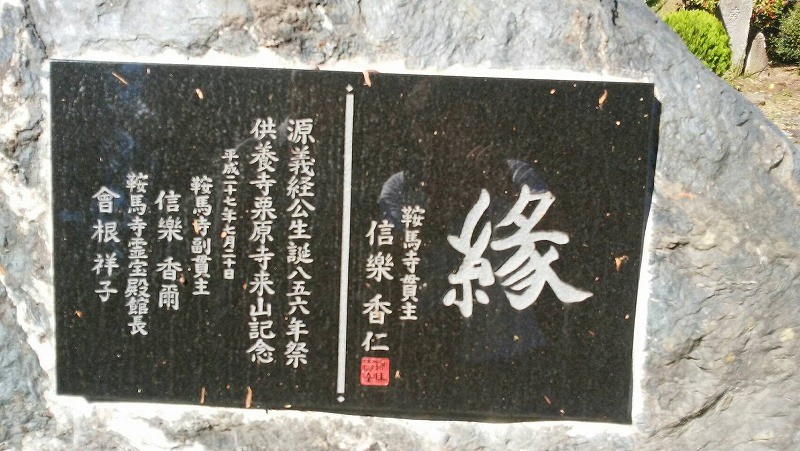 緣
鞍馬寺貫主
信樂香仁
源義経公生誕八五六年祭
供養寺栗原寺来山記念
平成二十七年七月二十日
鞍馬寺副貫主
信樂香爾
鞍馬寺霊宝殿館長
會根祥子